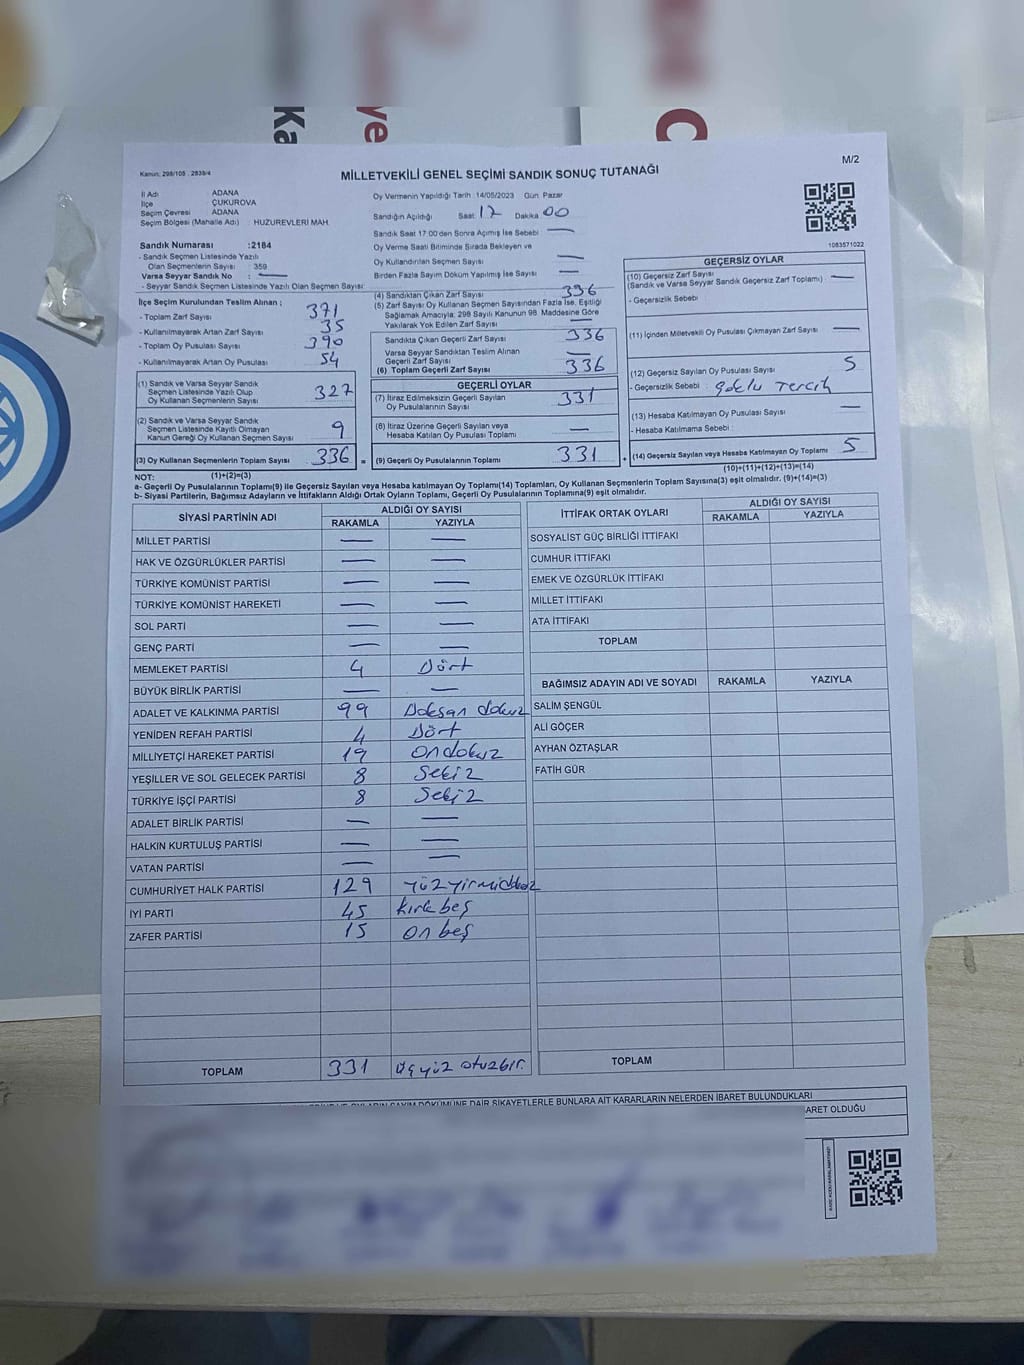 Ka
ve
C
M/2
Kanun: 298/105 , 2839/4
MİLLETVEKİLİ GENEL SEÇİMİ SANDIK SONUÇ TUTANAĞI
İl Adı ADANA
İlçe ÇUKUROVA
Seçim Çevresi ADANA
Seçim Bölgesi (Mahalle Adı) : HUZUREVLERİ MAH.
Sandık Numarası :2184
- Sandık Seçmen Listesinde Yazılı
Olan Seçmenlerin Sayısı : 359
Varsa Seyyar Sandık No : —
- Seyyar Sandık Seçmen Listesinde Yazılı Olan Seçmen Sayısı:
Oy Vermenin Yapıldığı Tarih :14/05/2023 Gün: Pazar
Sandığın Açıldığı Saat 17 Dakika 00
Sandık Saat 17:00'den Sonra Açılmış İse Sebebi —
Oy Verme Saati Bitiminde Sırada Bekleyen ve
Oy Kullandırılan Seçmen Sayısı —
Birden Fazla Sayım Döküm Yapılmış İse Sayısı —
1083571022
İlçe Seçim Kurulundan Teslim Alınan ;
- Toplam Zarf Sayısı 371
- Kullanılmayarak Artan Zarf Sayısı 35
- Toplam Oy Pusulası Sayısı 390
- Kullanılmayarak Artan Oy Pusulası 54
(1) Sandık ve Varsa Seyyar Sandık
Seçmen Listesinde Yazılı Olup
Oy Kullanan Seçmenlerin Sayısı 327
(2) Sandık ve Varsa Seyyar Sandık
Seçmen Listesinde Kayıtlı Olmayan
Kanun Gereği Oy Kullanan Seçmen Sayısı 9
(3) Oy Kullanan Seçmenlerin Toplam Sayısı 336 =
(4) Sandıktan Çıkan Zarf Sayısı 336
(5) Zarf Sayısı Oy Kullanan Seçmen Sayısından Fazla İse, Eşitliği
Sağlamak Amacıyla; 298 Sayılı Kanunun 98. Maddesine Göre
Yakılarak Yok Edilen Zarf Sayısı —
Sandıkta Çıkan Geçerli Zarf Sayısı 336
Varsa Seyyar Sandıktan Teslim Alınan
Geçerli Zarf Sayısı —
(6) Toplam Geçerli Zarf Sayısı 336
GEÇERLİ OYLAR
(7) İtiraz Edilmeksizin Geçerli Sayılan
Oy Pusulalarının Sayısı 331
(8) İtiraz Üzerine Geçerli Sayılan veya
Hesaba Katılan Oy Pusulası Toplamı —
(9) Geçerli Oy Pusulalarının Toplamı 331 +
GEÇERSİZ OYLAR
(10) Geçersiz Zarf Sayısı
(Sandık ve Varsa Seyyar Sandık Geçersiz Zarf Toplamı) —
- Geçersizlik Sebebi
(11) İçinden Milletvekili Oy Pusulası Çıkmayan Zarf Sayısı —
(12) Geçersiz Sayılan Oy Pusulası Sayısı 5
- Geçersizlik Sebebi : Çoklu Tercih
(13) Hesaba Katılmayan Oy Pusulası Sayısı —
- Hesaba Katılmama Sebebi :
(14) Geçersiz Sayılan veya Hesaba Katılmayan Oy Toplamı 5
NOT: (1)+(2)=(3) (10)+(11)+(12)+(13)=(14)
a- Geçerli Oy Pusulalarının Toplamı(9) ile Geçersiz Sayılan veya Hesaba katılmayan Oy Toplamı(14) Toplamları, Oy Kullanan Seçmenlerin Toplam Sayısına(3) eşit olmalıdır. (9)+(14)=(3)
b- Siyasi Partilerin, Bağımsız Adayların ve İttifakların Aldığı Ortak Oyların Toplamı, Geçerli Oy Pusulalarının Toplamına(9) eşit olmalıdır.
SİYASİ PARTİNİN ADI ALDIĞI OY SAYISI
RAKAMLA YAZIYLA
MİLLET PARTİSİ — —
HAK VE ÖZGÜRLÜKLER PARTİSİ — —
TÜRKİYE KOMÜNİST PARTİSİ — —
TÜRKİYE KOMÜNİST HAREKETİ — —
SOL PARTİ — —
GENÇ PARTİ — —
MEMLEKET PARTİSİ 4 Dört
BÜYÜK BİRLİK PARTİSİ — —
ADALET VE KALKINMA PARTİSİ 99 Doksan dokuz
YENİDEN REFAH PARTİSİ 4 Dört
MİLLİYETÇİ HAREKET PARTİSİ 19 On dokuz
YEŞİLLER VE SOL GELECEK PARTİSİ 8 Sekiz
TÜRKİYE İŞÇİ PARTİSİ 8 Sekiz
ADALET BİRLİK PARTİSİ — —
HALKIN KURTULUŞ PARTİSİ — —
VATAN PARTİSİ — —
CUMHURİYET HALK PARTİSİ 129 Yüzyirmidokuz
İYİ PARTİ 45 Kırk beş
ZAFER PARTİSİ 15 On beş
TOPLAM 331 Üçyüz otuzbir.
İTTİFAK ORTAK OYLARI ALDIĞI OY SAYISI
RAKAMLA YAZIYLA
SOSYALİST GÜÇ BİRLİĞİ İTTİFAKI
CUMHUR İTTİFAKI
EMEK VE ÖZGÜRLÜK İTTİFAKI
MİLLET İTTİFAKI
ATA İTTİFAKI
TOPLAM
BAĞIMSIZ ADAYIN ADI VE SOYADI RAKAMLA YAZIYLA
SALİM ŞENGÜL
ALİ GÖÇER
AYHAN ÖZTAŞLAR
FATİH GÜR
TOPLAM
OYLARIN SAYIM DÖKÜMÜNE DAİR ŞİKAYETLERLE BUNLARA AİT KARARLARIN NELERDEN İBARET BULUNDUKLARI
ARET OLDUĞU